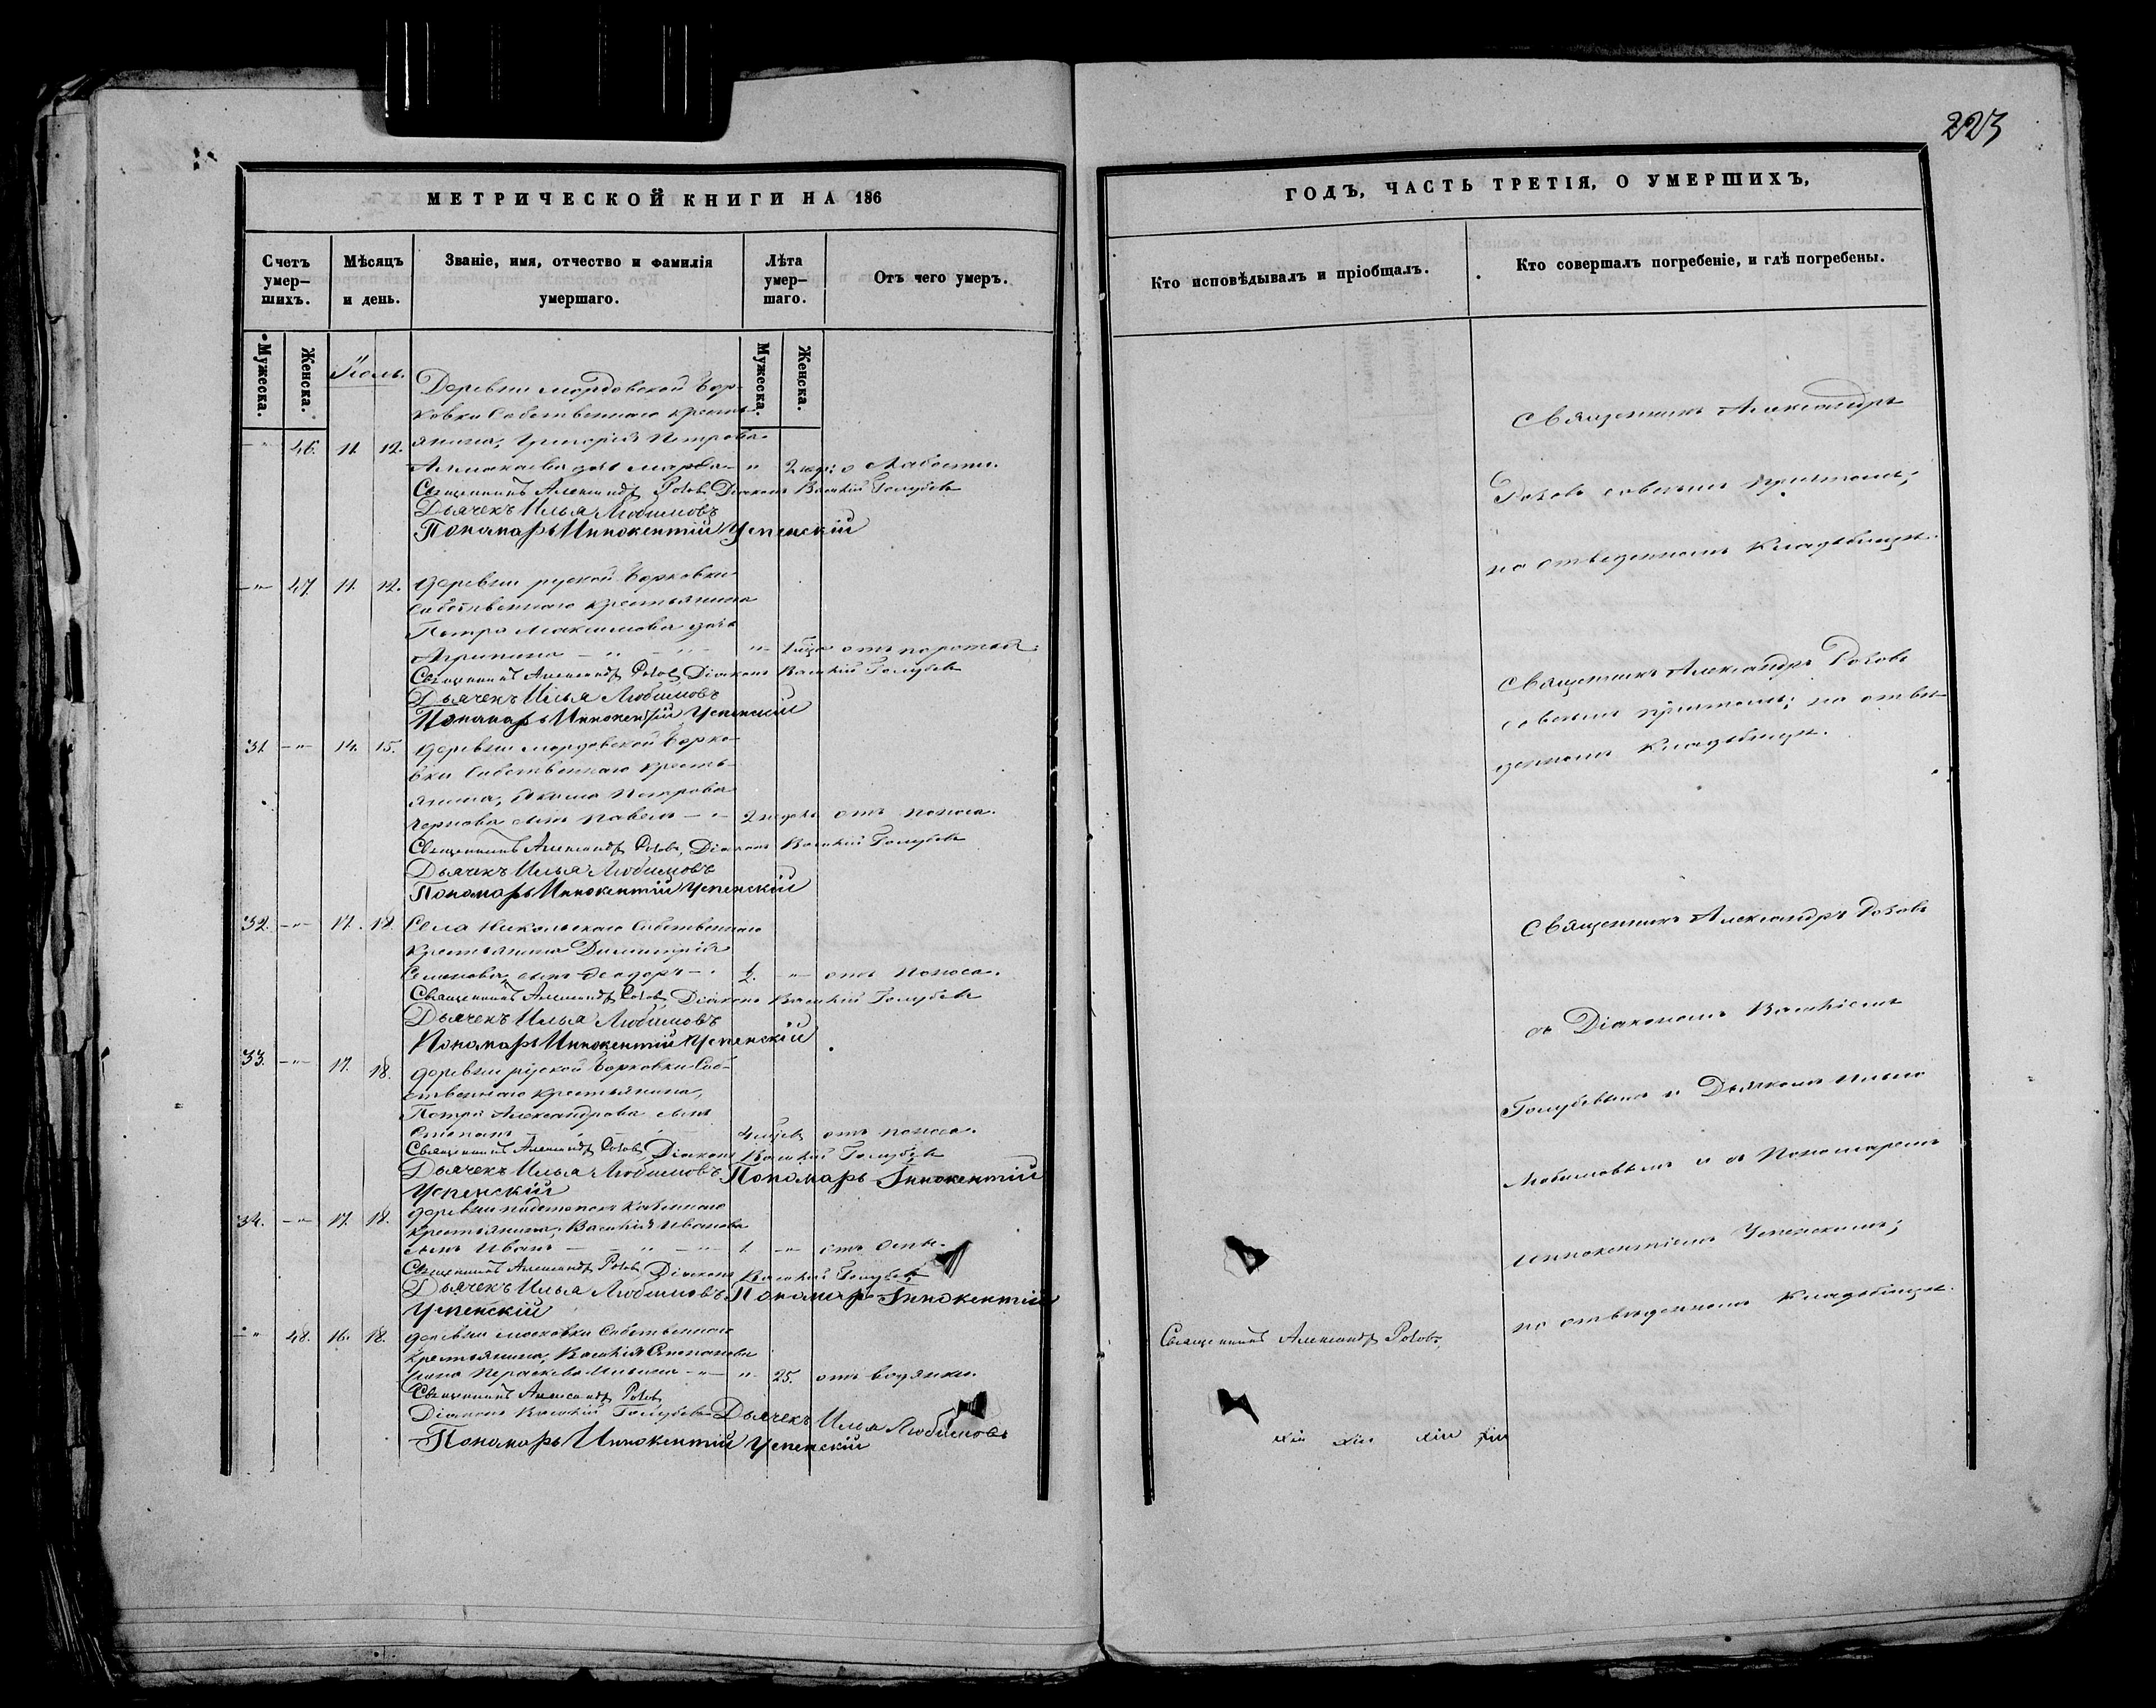 223
МЕТРИЧЕСКОЙ КНИГИ НА 186
Счетъ умер- шихъ.
Мѣсяцъ и день.
Званіе, имя, отчество и фамилія умершаго.
Лѣта умер- шаго.
Отъ чего умеръ.
Мужеска.
Женска.
Мужеска.
Женска.
Іюль.
Деревни мордовской Бор-
ковки Собственнаго кресть-
46. 11 12. янина, Григорія Петрова
дочь Марѳа " 2 слабости.
Священникъ Александръ Роховъ, Діаконъ Василій Голубевъ
Дьячекъ Илья Любимовъ
Пономарь Иннокентій Успенскій
-"- 47. 11. 12. деревни руской Борковки
Собственнаго крестьянина
Петра Максимова дочь
Агрипина - " -
Священникъ Александръ Роховъ, Діаконъ Василій Голубевъ
Дьячекъ Илья Любимовъ
Пономарь Иннокентій Успенскій
31 -"- 14. 15. деревни мордовской Борко-
вки Собственнаго кресть-
янина, Петрова
Чернова сынъ Павелъ - 2 недель отъ поноса.
Священникъ Александръ Роховъ, Діаконъ Василій Голубевъ
Дьячекъ Илья Любимовъ
Пономарь Иннокентій Успенскій
32. -"- 17. 18. Села Никольскаго Собственнаго
крестьянина Димитрія
Семенова, сынъ Ѳеодоръ - ½. -"- отъ поноса.
Священникъ Александръ Роховъ, Діаконъ Василій Голубевъ
Дьячекъ Илья Любимовъ
Пономарь Иннокентій Успенскій
33. -"- 17. 18. деревни руской Борковки Соб-
ственнаго крестьянина,
Петра Александрова сынъ
Степанъ 4 отъ поноса.
Священникъ Александръ Роховъ, Діаконъ Василій Голубевъ
Дьячекъ Илья Любимовъ Пономарь Іннокентій
Успенскій
34. -"- 17. 18. деревни
крестьянина, Василія Иванова
сынъ Иванъ - " - 1 -"- отъ оспы.
Священникъ Александръ Роховъ, Діаконъ Василій Голубевъ
Дьячекъ Илья Любимовъ Пономарь Іннокентій
Успенскій
-"- 48. 16. 18. деревни Московки Собственнаго
крестьянина, Василія Степанова
жена Параскева Ильина -"- " 25. отъ водянки.
Священникъ Александръ Роховъ
Діаконъ Василій Голубевъ Дьячекъ Илья Любимовъ
Пономарь Иннокентій Успенскій
ГОДЪ, ЧАСТЬ ТРЕТІЯ, О УМЕРШИХЪ,
Кто исповѣдывалъ и пріобщалъ.
Кто совершалъ погребеніе, и гдѣ погребены.
Священникъ Александръ
Роховъ совсемъ причтомъ;
на отведенномъ кладбищѣ.
Священникъ Александръ Роховъ
совсемъ причтомъ; на отве-
денномъ кладбищѣ.
Священникъ Александръ Роховъ
съ Діакономъ Василіемъ
Голубевымъ и Дьячкомъ Ильею
Любимовымъ и съ Пономаремъ
Иннокентіемъ Успенскимъ;
на отведенномъ кладбищѣ.
Священникъ Александръ Роховъ,